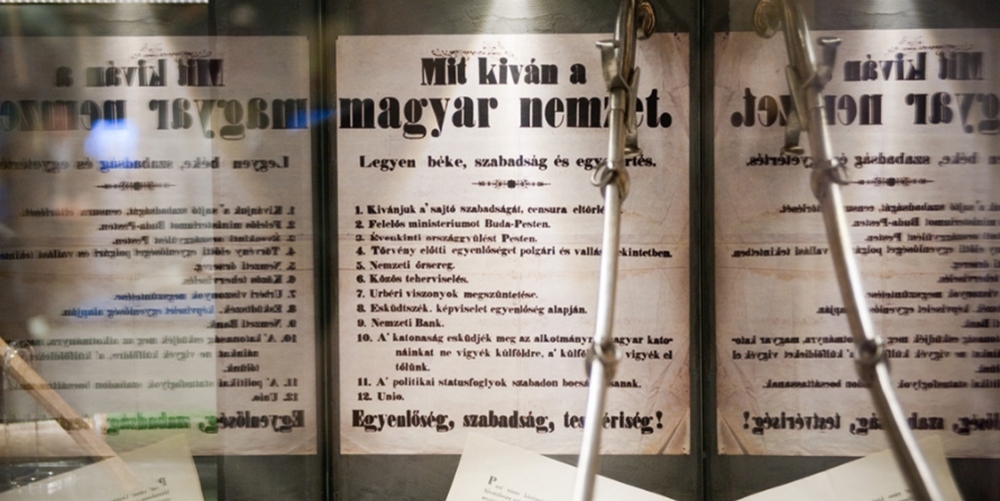 Mit kiván a
magyar nemzet.
Legyen béke, szabadság és egyetértés.
1. Kivánjuk a' sajtó szabadságát, censura eltörlé
2. Felelős ministeriumot Buda-Pesten.
3. Évenkinti országgyülést Pesten.
4. Törvény előtti egyenlőséget polgári és vallási tekintetben.
5. Nemzeti őrsereg.
6. Közös teherviselés.
7. Urbéri viszonyok megszüntetése.
8. Esküdtszék, képviselet egyenlőség alapján.
9. Nemzeti Bank.
10. A' katonaság esküdjék meg az alkotmányra, magyar kato-
náinkat ne vigyék külföldre, a' külföldieket vigyék el
tőlünk.
11. A' politikai statusfoglyok szabadon bocsáttassanak.
12. Unio.
Egyenlőség, szabadság, testvériség!